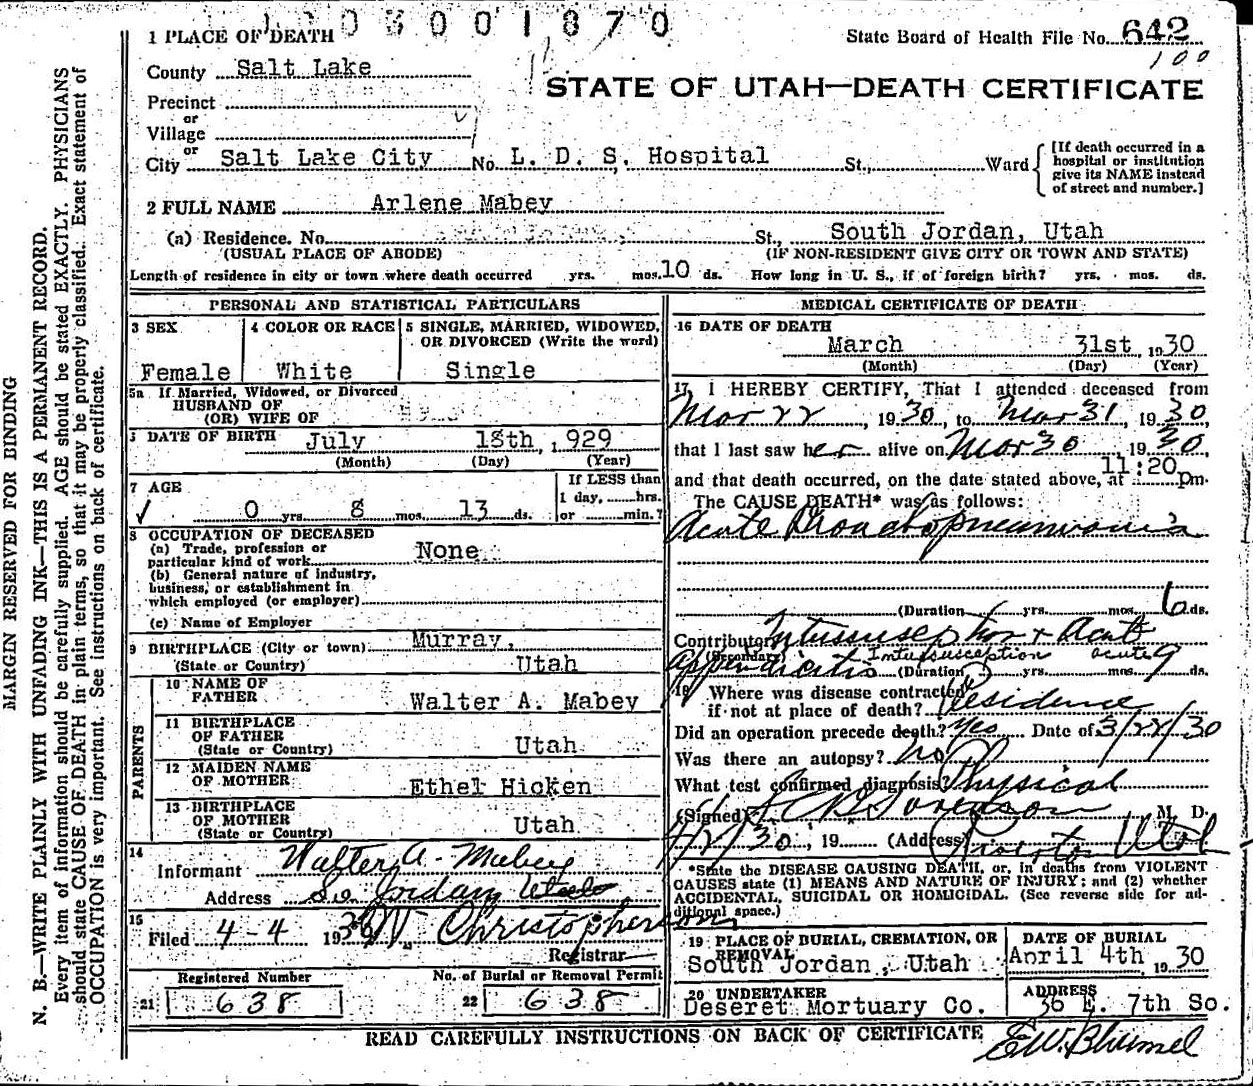 0 0 1 8 7 0
1 PLACE OF DEATH
State Board of Health File No. 642
100
County Salt Lake
STATE OF UTAH—DEATH CERTIFICATE
Precinct
or
Village
or
City Salt Lake City No. L. D. S. Hospital St., Ward
[If death occurred in a hospital or institution give its NAME instead of street and number.]
2 FULL NAME Arlene Mabey
(a) Residence. No. St., South Jordan, Utah
(USUAL PLACE OF ABODE) (IF NON-RESIDENT GIVE CITY OR TOWN AND STATE)
Length of residence in city or town where death occurred yrs. mos. 10 ds. How long in U. S., if of foreign birth? yrs. mos. ds.
PERSONAL AND STATISTICAL PARTICULARS
3 SEX
Female
4 COLOR OR RACE
White
5 SINGLE, MARRIED, WIDOWED, OR DIVORCED (Write the word)
Single
5a If Married, Widowed, or Divorced
HUSBAND OF
(OR) WIFE OF
DATE OF BIRTH July 18th, 1929
(Month) (Day) (Year)
7 AGE
0 yrs. 8 mos. 13 ds.
If LESS than
1 day, hrs.
or min.?
8 OCCUPATION OF DECEASED
(a) Trade, profession or
particular kind of work None
(b) General nature of industry,
business, or establishment in
which employed (or employer)
(c) Name of Employer
9 BIRTHPLACE (City or town) Murray,
(State or Country) Utah
PARENTS
10 NAME OF
FATHER Walter A. Mabey
11 BIRTHPLACE
OF FATHER
(State or Country) Utah
12 MAIDEN NAME
OF MOTHER Ethel Hicken
13 BIRTHPLACE
OF MOTHER
(State or Country) Utah
14
Informant Walter A. Mabey
Address So Jordan Utah
15
Filed 4-4 1930 Christopherson
Registrar
Registered Number
21 638
No. of Burial or Removal Permit
22 638
MEDICAL CERTIFICATE OF DEATH
16 DATE OF DEATH
March 31st, 1930
(Month) (Day) (Year)
17 I HEREBY CERTIFY, That I attended deceased from
Mar 22, 1930, to Mar 31 1930,
that I last saw her alive on Mar 30 1930,
and that death occurred, on the date stated above, at 11:20 pm.
The CAUSE DEATH* was as follows:
Acute Bronchopneumonia
(Duration yrs. mos. 6 ds.
Contributory Intussusception + Acute
(Secondary) Intussusception acute
Appendicitis (Duration) yrs. mos. 9 ds.
18 Where was disease contracted
if not at place of death? Residence
Did an operation precede death? Yes Date of 3/22/30
Was there an autopsy? No
What test confirmed diagnosis? Physical
(Signed) Sorenson M. D.
4/2/30, 19 (Address) Utah
*State the DISEASE CAUSING DEATH, or, in deaths from VIOLENT
CAUSES state (1) MEANS AND NATURE OF INJURY; and (2) whether
ACCIDENTAL, SUICIDAL OR HOMICIDAL. (See reverse side for ad-
ditional space.)
19 PLACE OF BURIAL, CREMATION, OR
REMOVAL
South Jordan, Utah
DATE OF BURIAL
April 4th, 1930
20 UNDERTAKER
Deseret Mortuary Co.
ADDRESS
36 E. 7th So.
READ CAREFULLY INSTRUCTIONS ON BACK OF CERTIFICATE
MARGIN RESERVED FOR BINDING
N. B.—WRITE PLAINLY WITH UNFADING INK—THIS IS A PERMANENT RECORD.
Every item of information should be carefully supplied. AGE should be stated EXACTLY. PHYSICIANS
should state CAUSE OF DEATH in plain terms, so that it may be properly classified. Exact statement of
OCCUPATION is very important. See instructions on back of certificate.